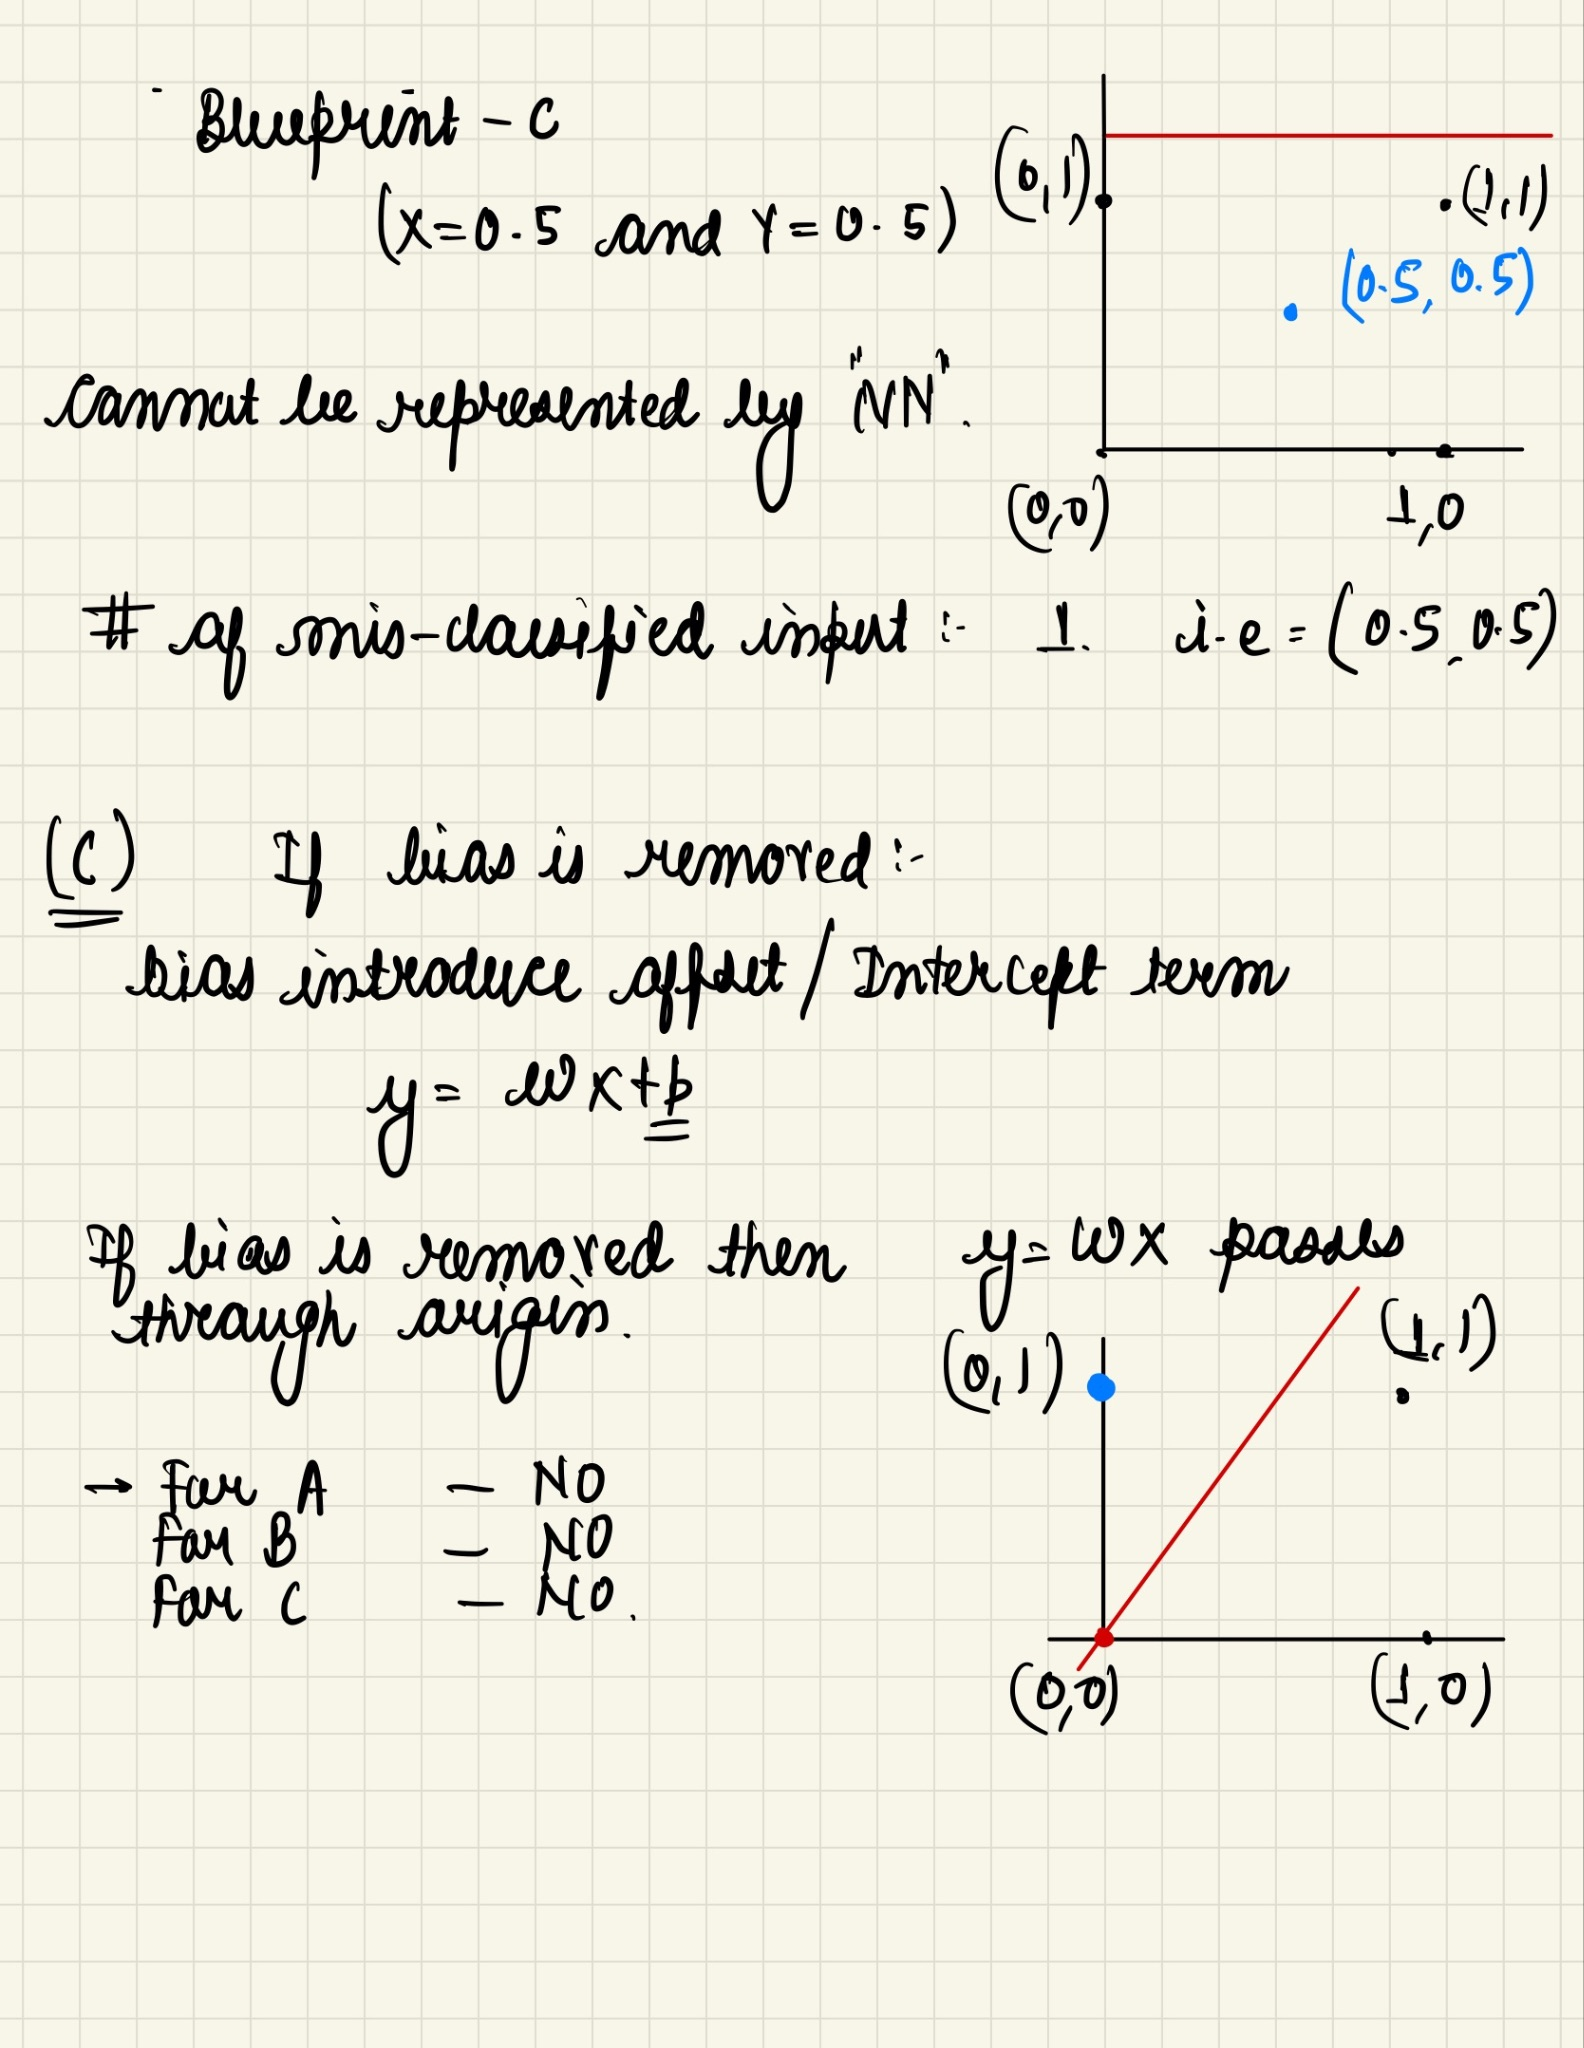 Blueprint - C
(X=0.5 and Y=0.5)
cannot be represented by "NN".
(0,1)
(1,1)
(0.5, 0.5)
(0,0)
1,0
# of mis-classified input :- 1. i.e = (0.5, 0.5)
(C) If bias is removed :-
bias introduce offset / Intercept term
y = wx+b
If bias is removed then y=wx passes
through origin.
(0,1)
(1,1)
→ For A - NO
For B - NO
For C - NO.
(0,0)
(1,0)